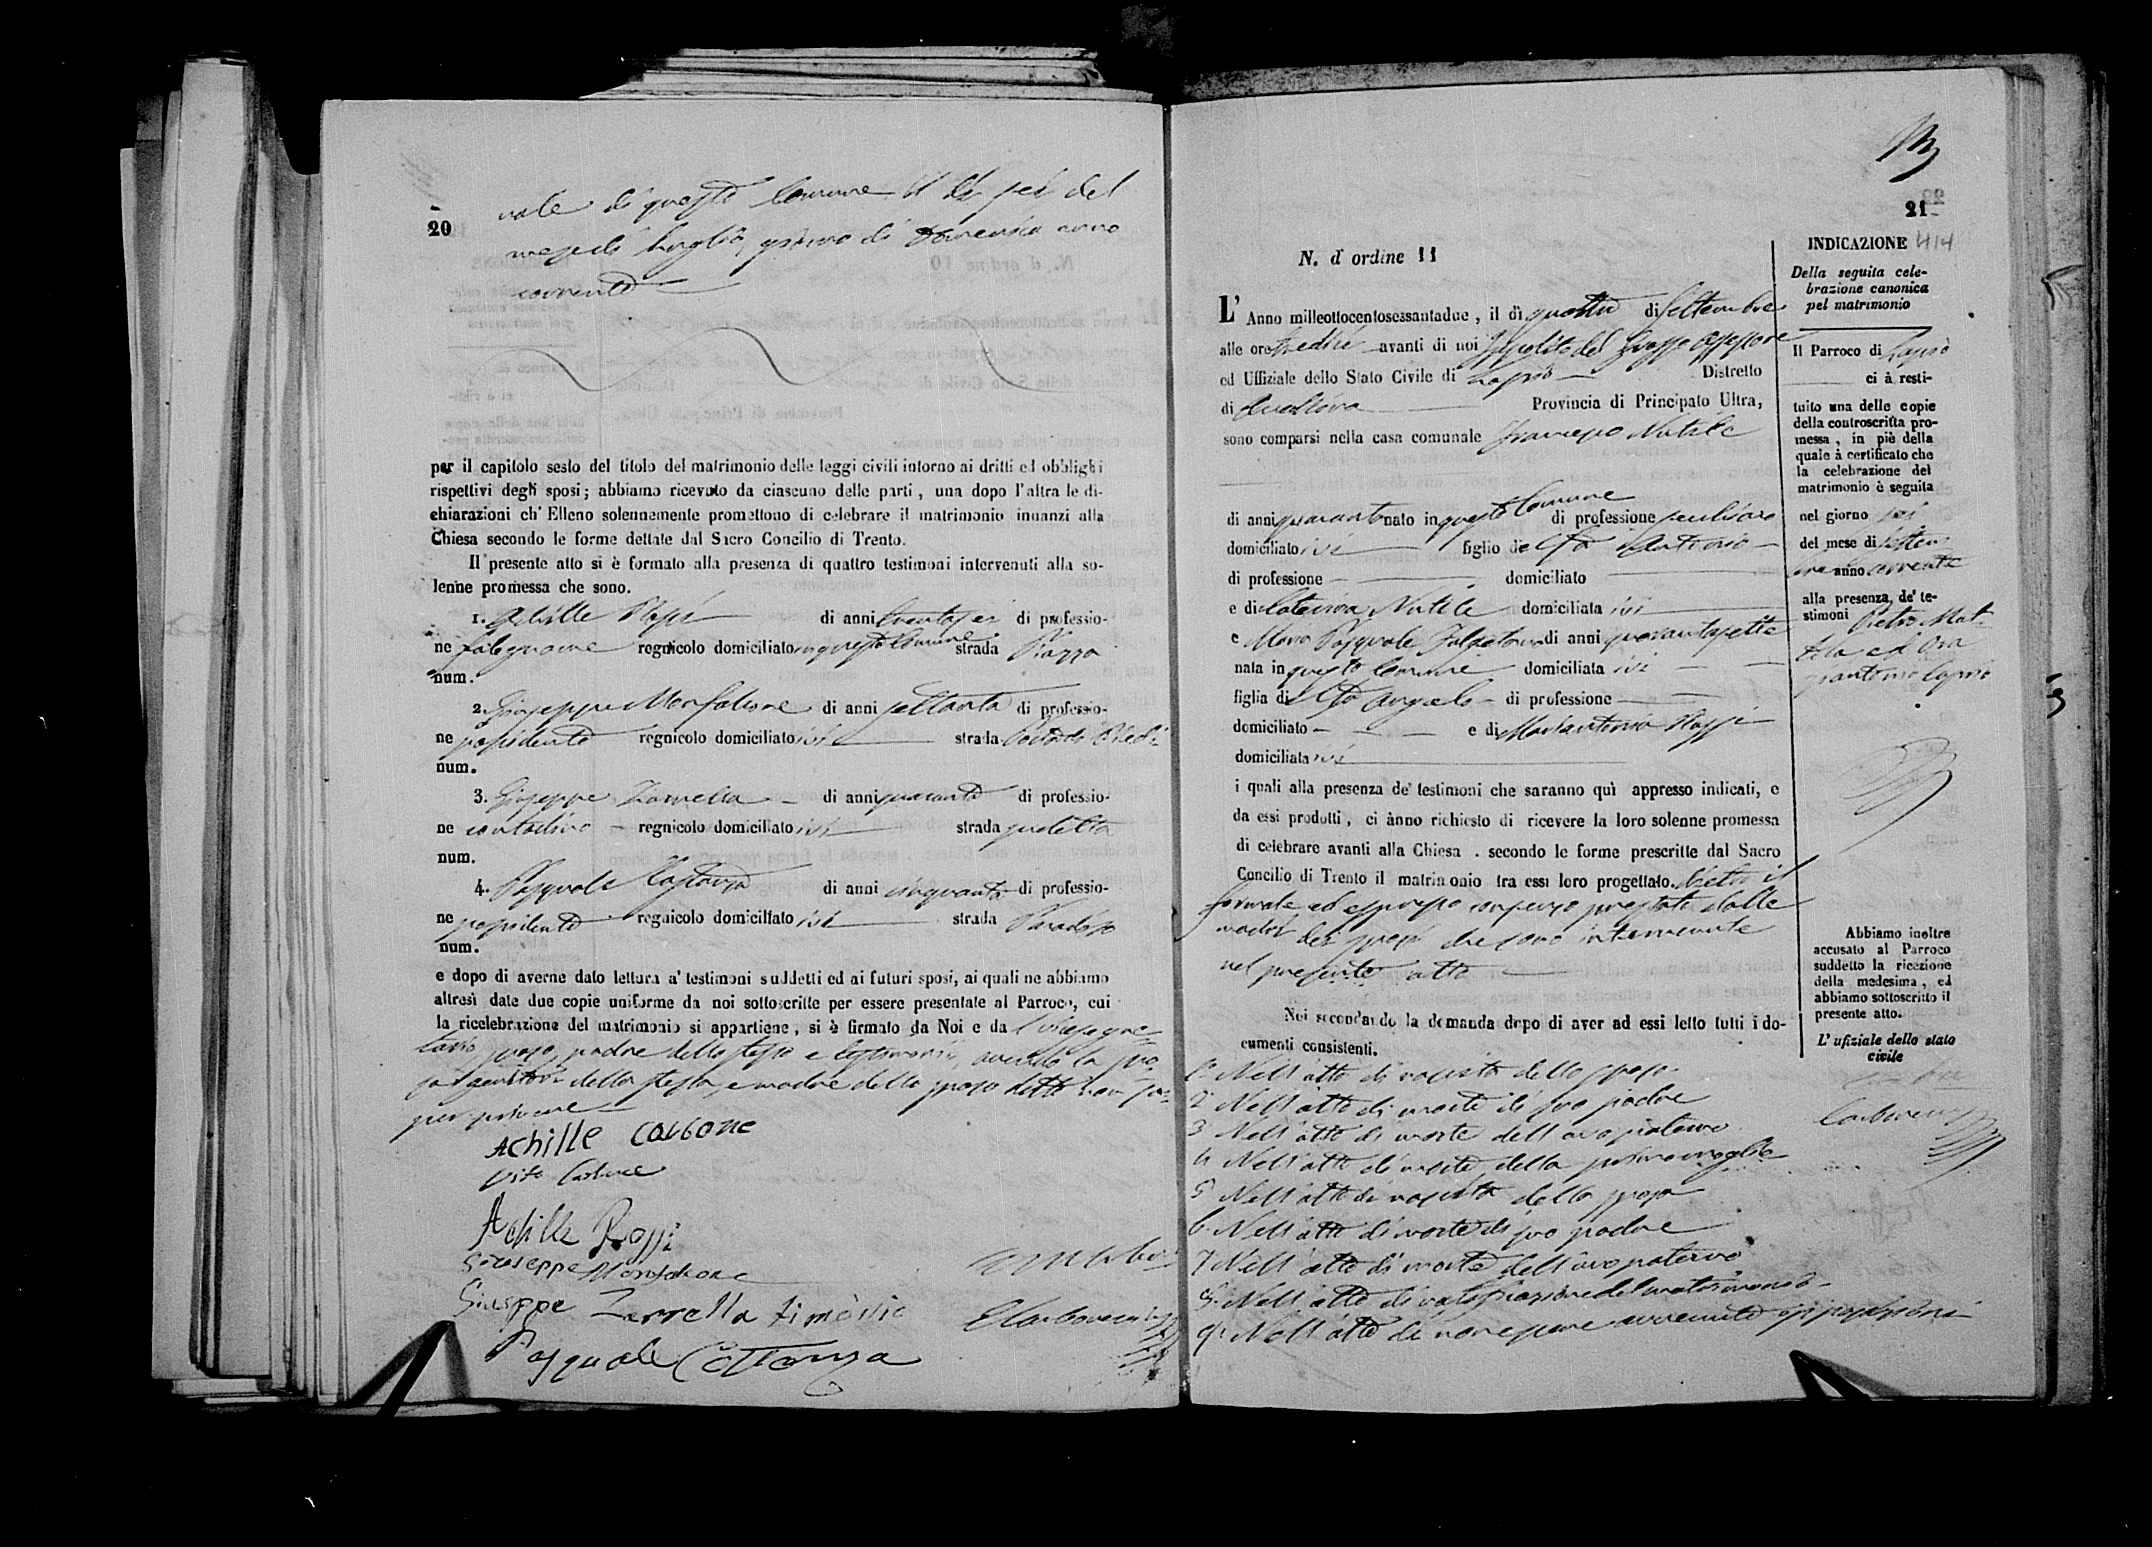 20
vale di questo Comune il dì sei del
mese di luglio, primo di Domenica anno
corrente
per il capitolo sesto del titolo del matrimonio delle leggi civili intorno ai dritti ed obblighi
rispettivi degli sposi; abbiamo ricevuto da ciascuno delle parti, una dopo l'altra le di-
chiarazioni ch' Elleno solennemente promettono di celebrare il matrimonio innanzi alla
Chiesa secondo le forme dettate dal Sacro Concilio di Trento.
Il presente atto si è formato alla presenza di quattro testimoni intervenuti alla so-
lenne promessa che sono.
1. Achille Rossi di anni trentasei di professio-
ne falegname regnicolo domiciliato in questo Comune strada Piazza
num.
2. Giuseppe Monfalcone di anni settanta di professio-
ne possidente regnicolo domiciliato ivi strada
num.
3. Giuseppe Zarrella di anni quaranta di professio-
ne contadino regnicolo domiciliato ivi strada
num.
4. Pasquale Costanza di anni cinquanta di professio-
ne possidente regnicolo domiciliato ivi strada Paradiso
num.
e dopo di averne dato lettura a' testimoni suddetti ed ai futuri sposi, ai quali ne abbiamo
altresì date due copie uniforme da noi sottoscritte per essere presentate al Parroco, cui
la ricelebrazione del matrimonio si appartiene, si è firmato da Noi e da
sposo, padre dello stesso e testimoni avendo la spo-
sa genitori della stessa, e madre dello sposo detto non sa-
per scrivere
Achille Carbone
Vito Carbone
Achille Rossi
Gioseppe Monfalcone
Giuseppe Zarrella timonio
Pasquale Costanza
21
414
N. d' ordine 11
L' Anno milleottocentosessantadue, il dì quattro di Settembre
alle ore tredici avanti di noi Ippolito del Grosso Assessore
ed Uffiziale dello Stato Civile di Caposo Distretto
di Provincia di Principato Ultra,
sono comparsi nella casa comunale Francesco Natale
di anni quaranta nato in questo Comune di professione
domiciliato ivi figlio di fu Antonio
di professione domiciliato
e di Caterina Natale domiciliata ivi
e Maria Pasquale di anni quarantasette
nata in questo Comune domiciliata ivi
figlia di fu Angelo di professione
domiciliato e di Mariantonia Rossi
domiciliata ivi
i quali alla presenza de' testimoni che saranno quì appresso indicati, e
da essi prodotti, ci ànno richiesto di ricevere la loro solenne promessa
di celebrare avanti alla Chiesa, secondo le forme prescritte dal Sacro
Concilio di Trento il matrimonio tra essi loro progettato. Dietro il
formale ed espresso consenso prestato dalle
madri dei sposi che sono intervenute
nel presente atto
Noi secondando la demanda dopo di aver ad essi letto tutti i do-
cumenti consistenti.
1. Nell'atto di nascita dello sposo
2. Nell'atto di morte di suo padre
3. Nell'atto di morte dell'avo paterno
4. Nell'atto di morte della prima moglie
5. Nell'atto di nascita della sposa
6. Nell'atto di morte di suo padre
7. Nell'atto di morte dell'avo paterno
8. Nell'atto di notificazione del matrimonio
9. Nell'atto di non essere avvenute opposizioni
INDICAZIONE
Della seguita cele-
brazione canonica
pel matrimonio
Il Parroco di
ci à resti-
tuito una delle copie
della controscritta pro-
messa, in piè della
quale à certificato che
la celebrazione del
matrimonio è seguita
nel giorno sei
del mese di Settem-
bre anno corrente
alla presenza, de' te-
stimoni Pietro
Abbiamo inoltre
accusato al Parroco
suddetto la ricezione
della medesima, ed
abbiamo sottoscritto il
presente atto.
L' ufiziale dello stato
civile